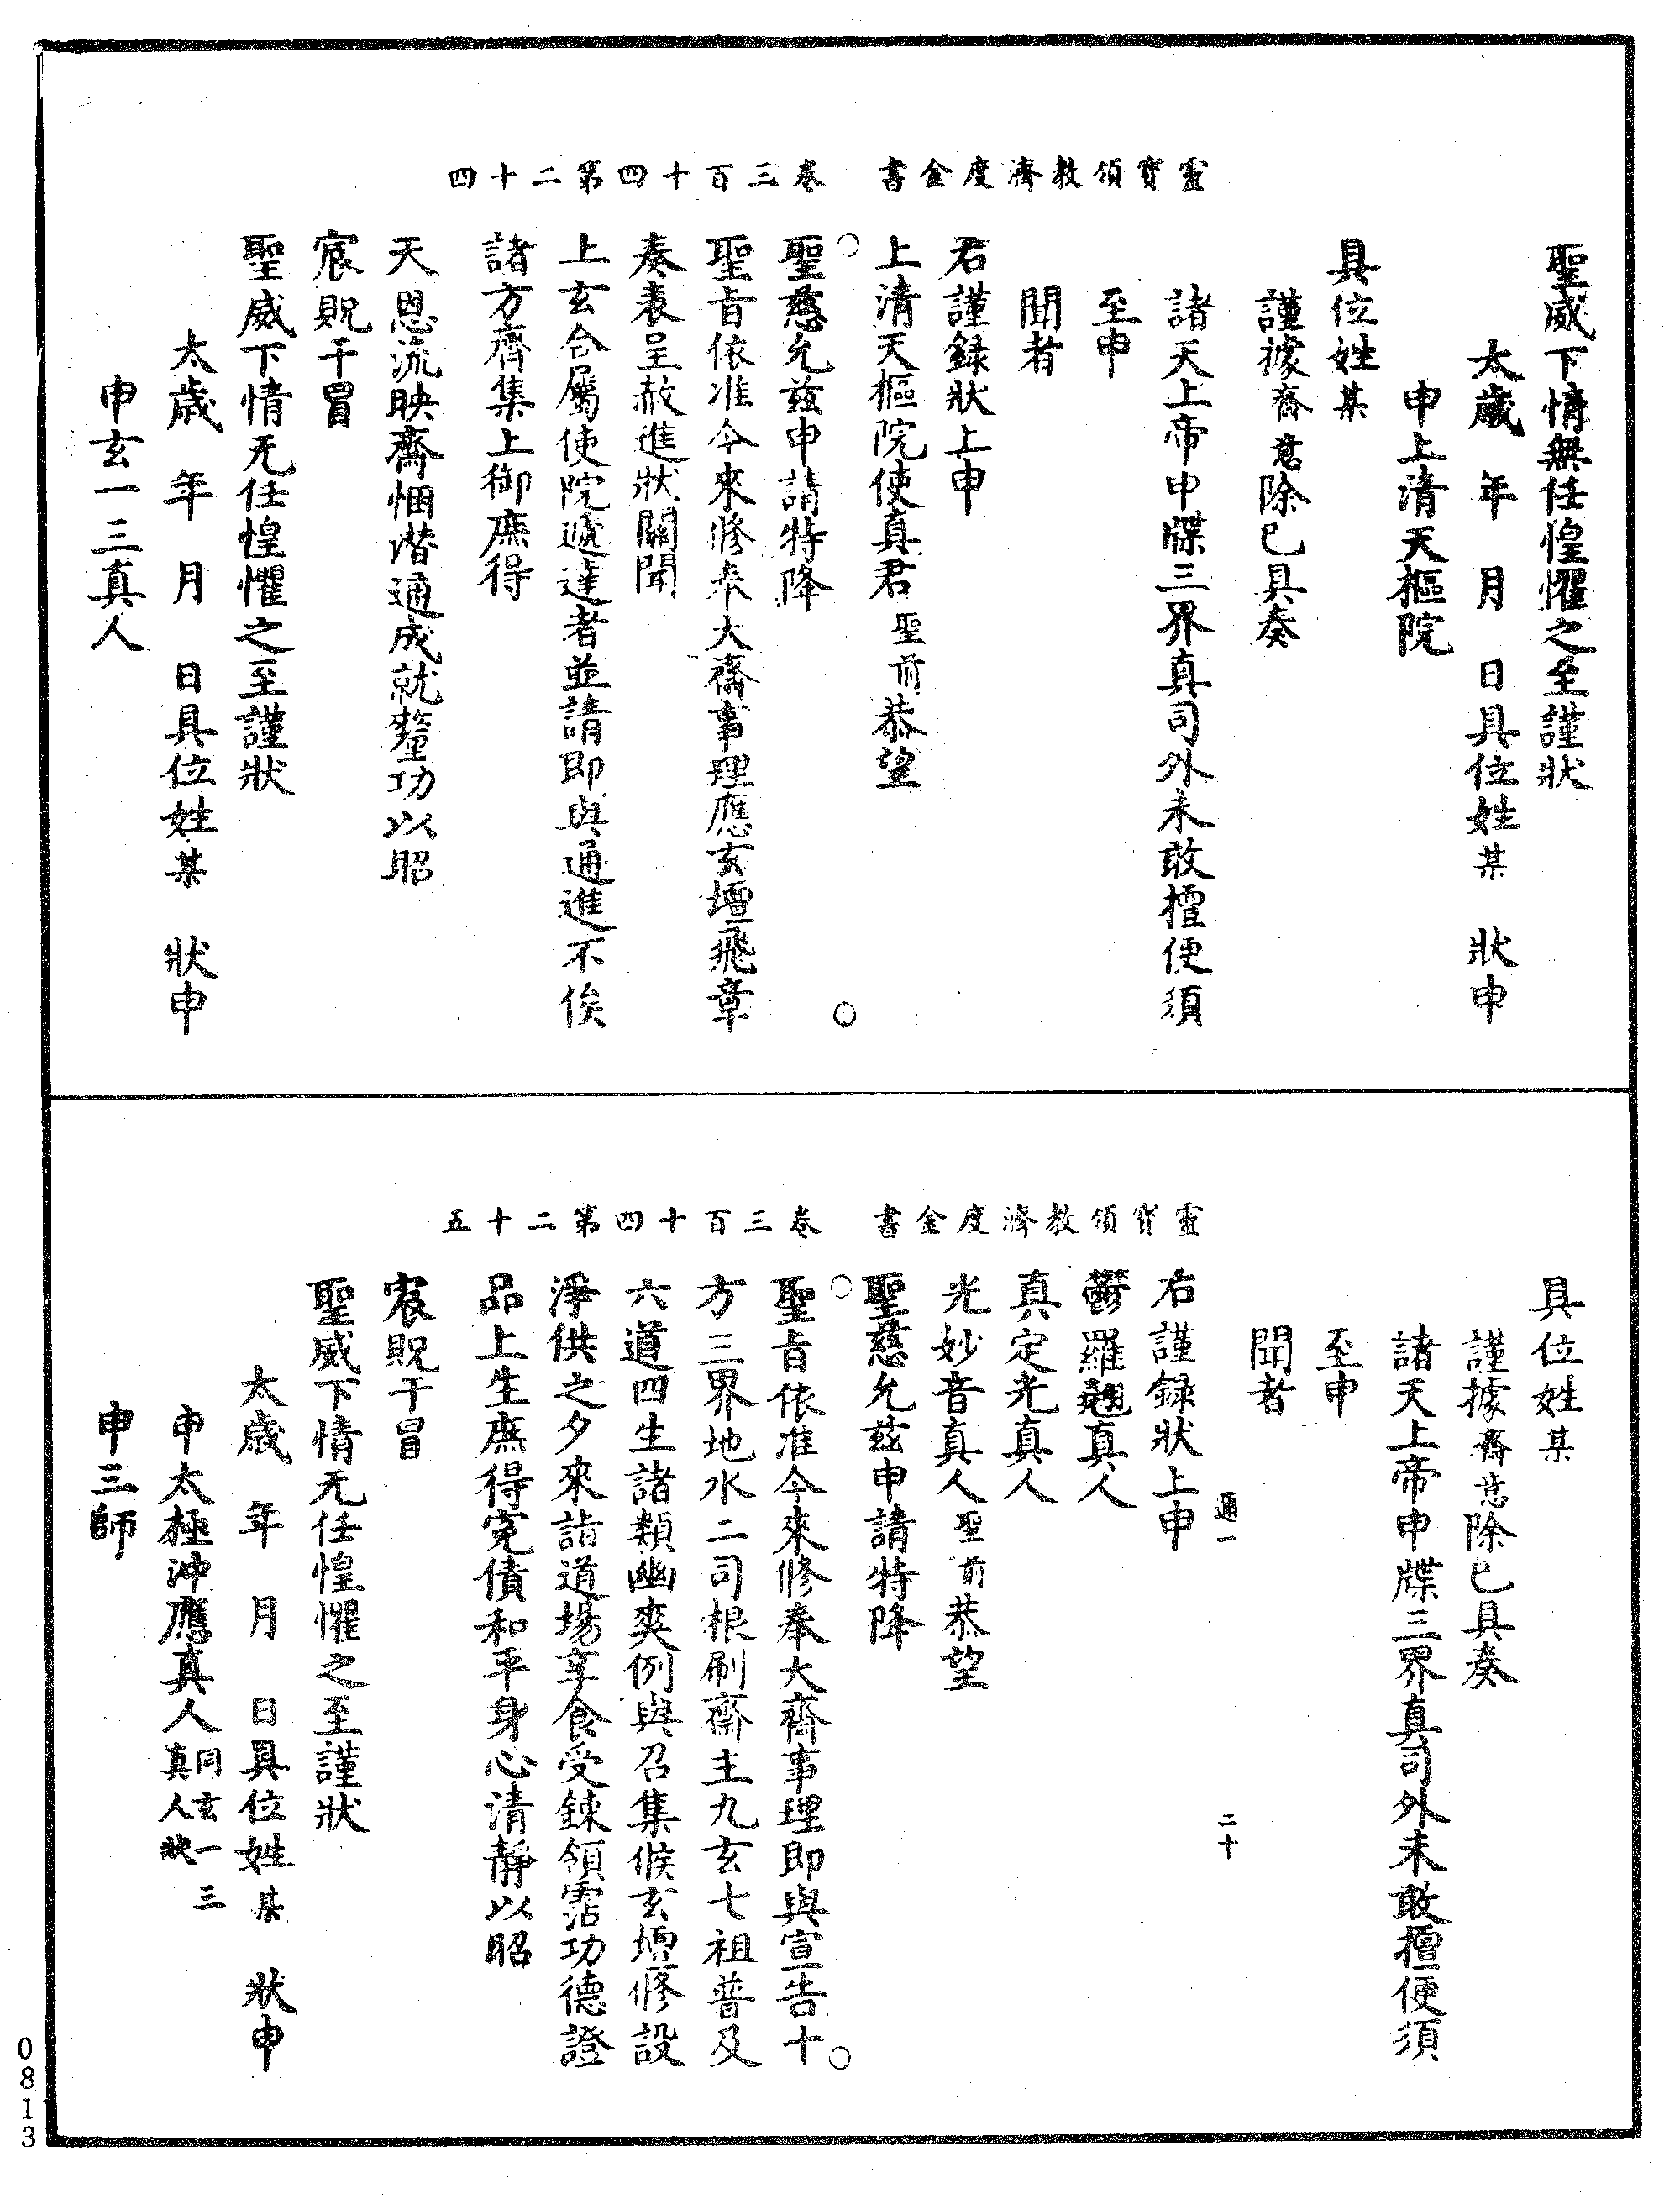 聖威下情無任惶懼之至謹狀
太歲　年　月　日具位姓某　狀申
申上清天樞院
具位姓某
謹據齋意除已具奏
諸天上帝申牒三界真司外未敢擅便須
至申
聞者
右謹録狀上申
上清天樞院使真君聖前恭望
靈寶領教濟度金書　卷三百十四第二十四
聖慈允茲申請特降
聖旨依准今來修奉大齋事理應玄壇飛章
奏表呈赦進狀關聞
上玄合屬使院遞達者並請即與通進不俟
諸方齊集上御庶得
天恩流映齋悃潛通成就鰲功以昭
宸貺干冒
聖威下情无任惶懼之至謹狀
太歲　年　月　日具位姓某　狀申
申玄一三真人
具位姓某
謹據齋意除已具奏
諸天上帝申牒三界真司外未敢擅便須
至申
聞者
通一　二十
右謹録狀上申
鬱羅翹真人
真定光真人
光妙音真人聖前恭望
聖慈允茲申請特降
靈寶領教濟度金書　卷三百十四第二十五
聖旨依准今來修奉大齋事理即與宣告十
方三界地水二司根刷齋主九玄七祖普及
六道四生諸類幽爽例與召集候玄壇修設
淨供之夕來詣道場享食受鍊領霑功德證
品上生庶得寃債和平身心清靜以昭
宸貺干冒
聖威下情无任惶懼之至謹狀
太歲　年　月　日具位姓某　狀申
申太極沖應真人同玄一三真人狀
申三師
0813